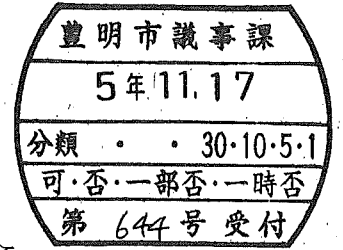 豊明市議事課
5年11.17
分類 ・ ・ 30・10・5・1
可・否・一部否・一時否
第 644 号 受付